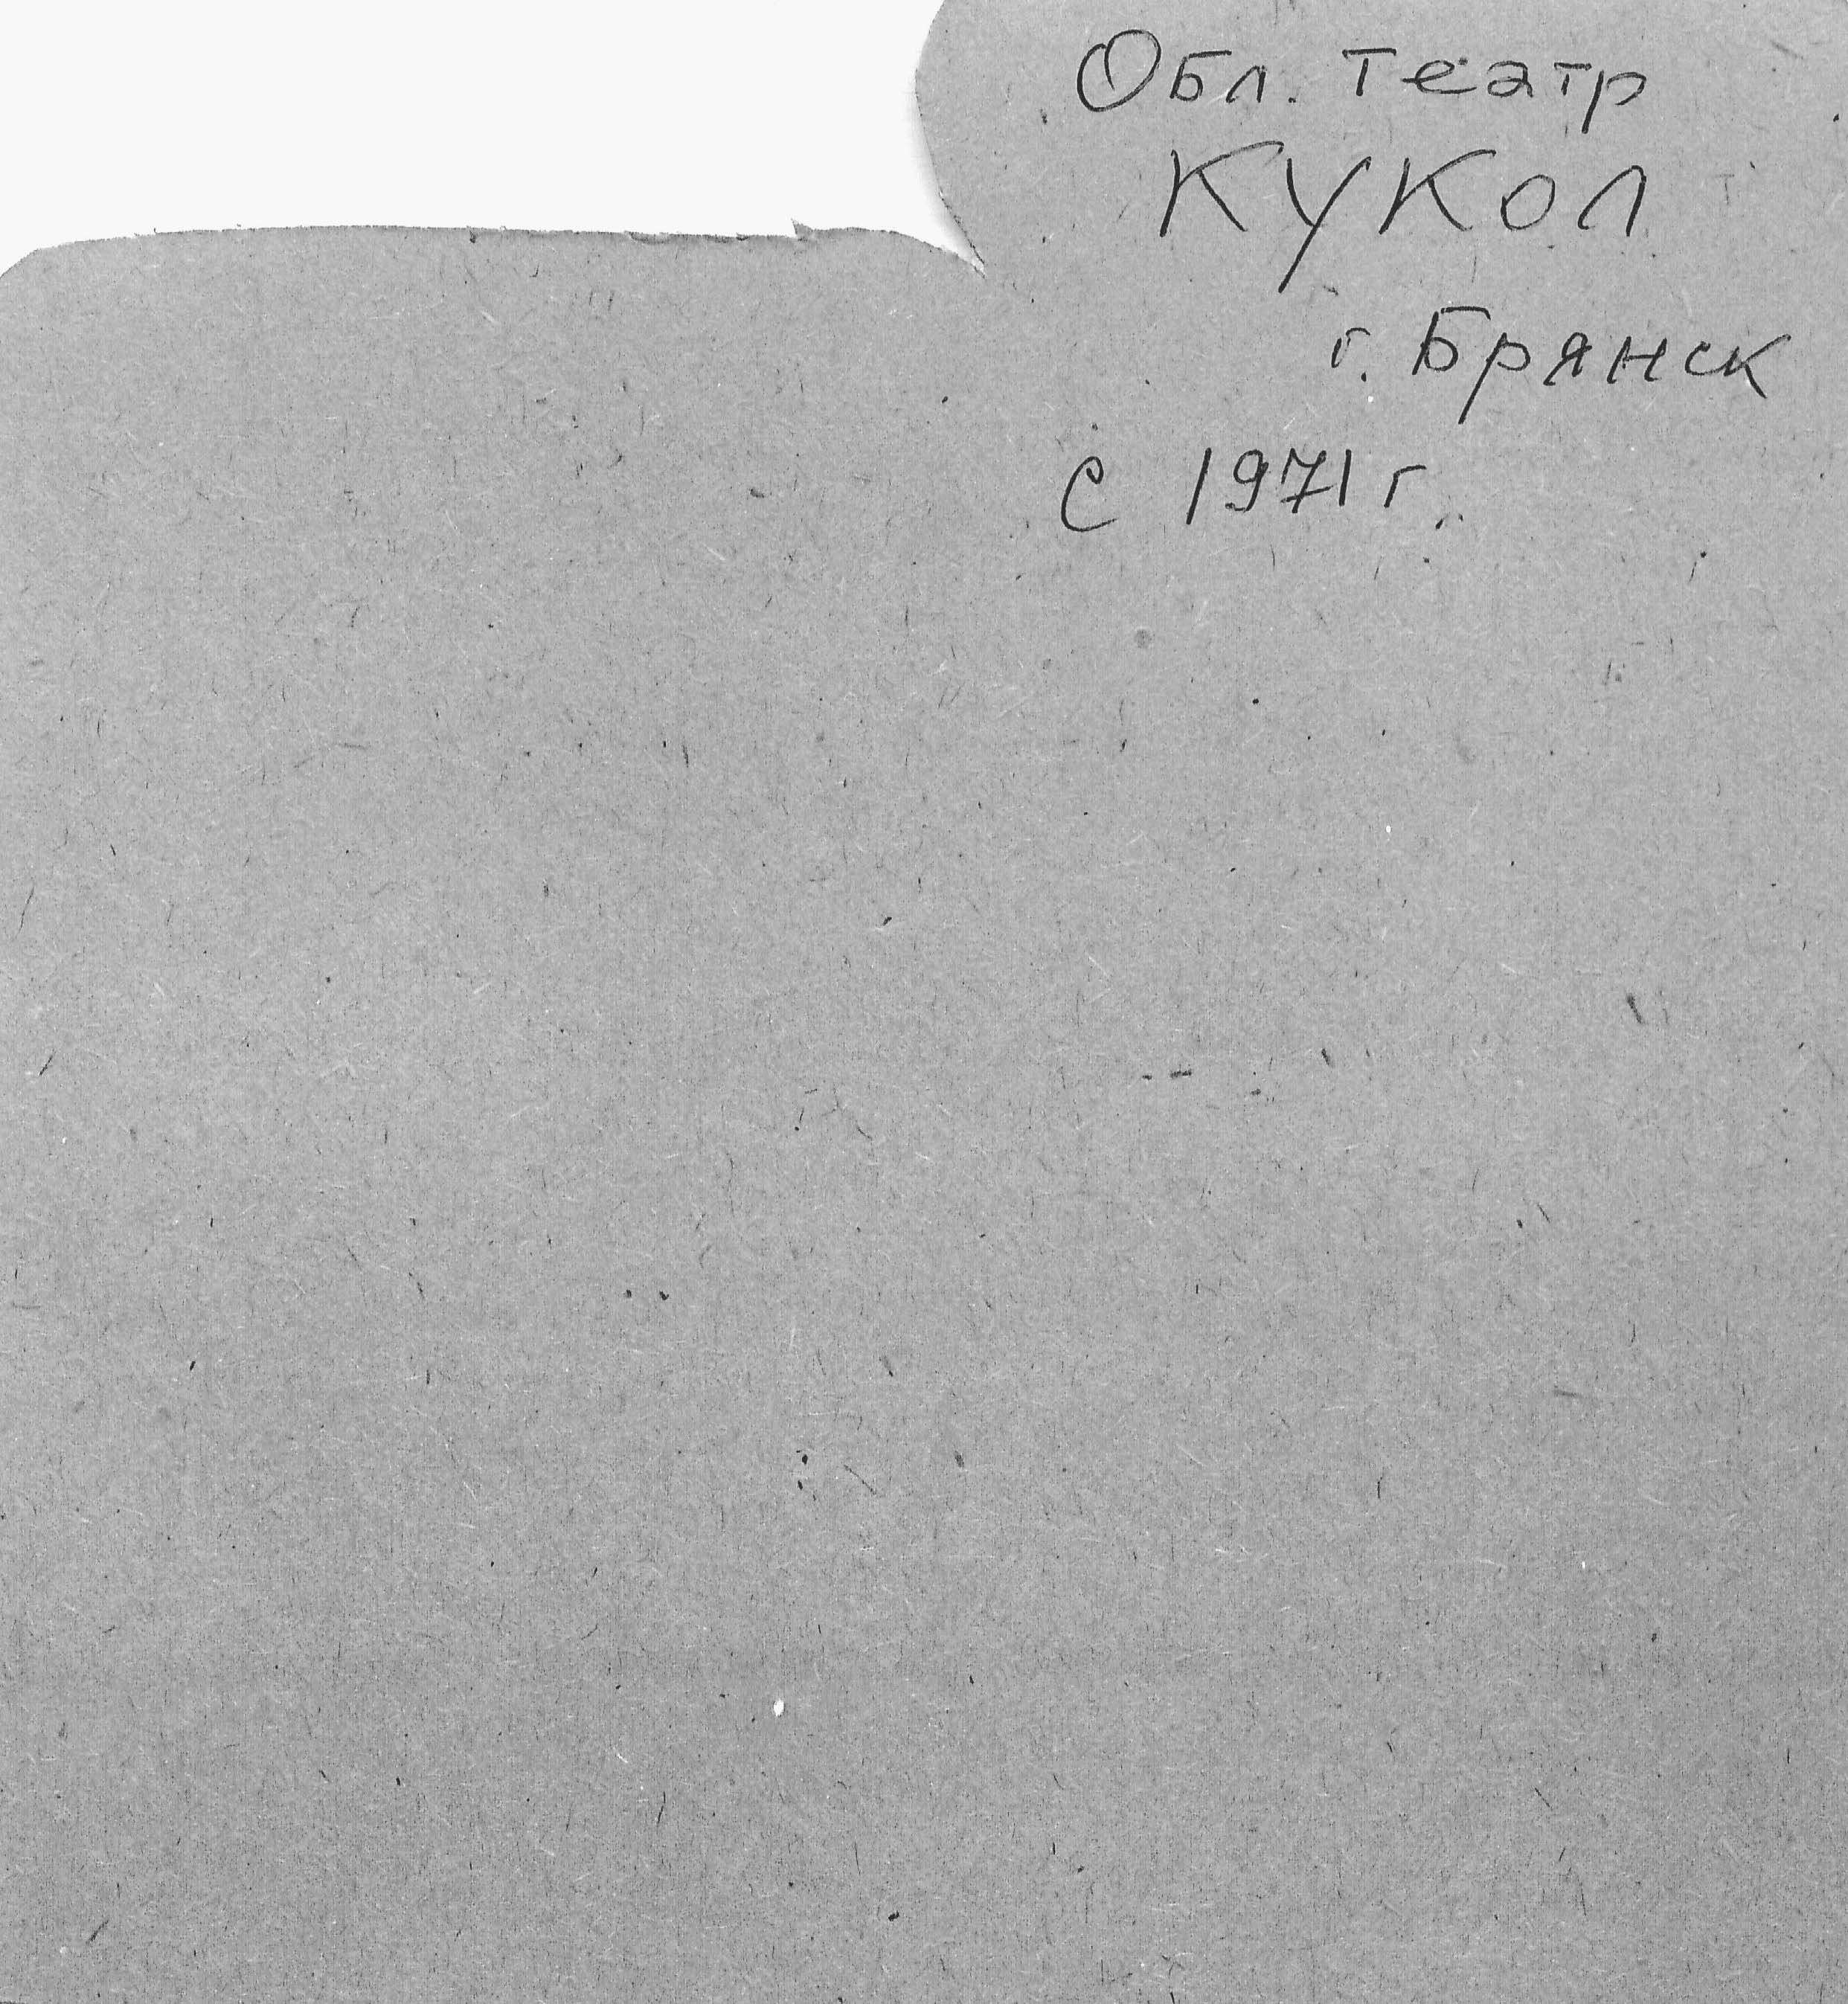 Обл. театр
КУКОЛ
г. Брянск
с 1971 г.